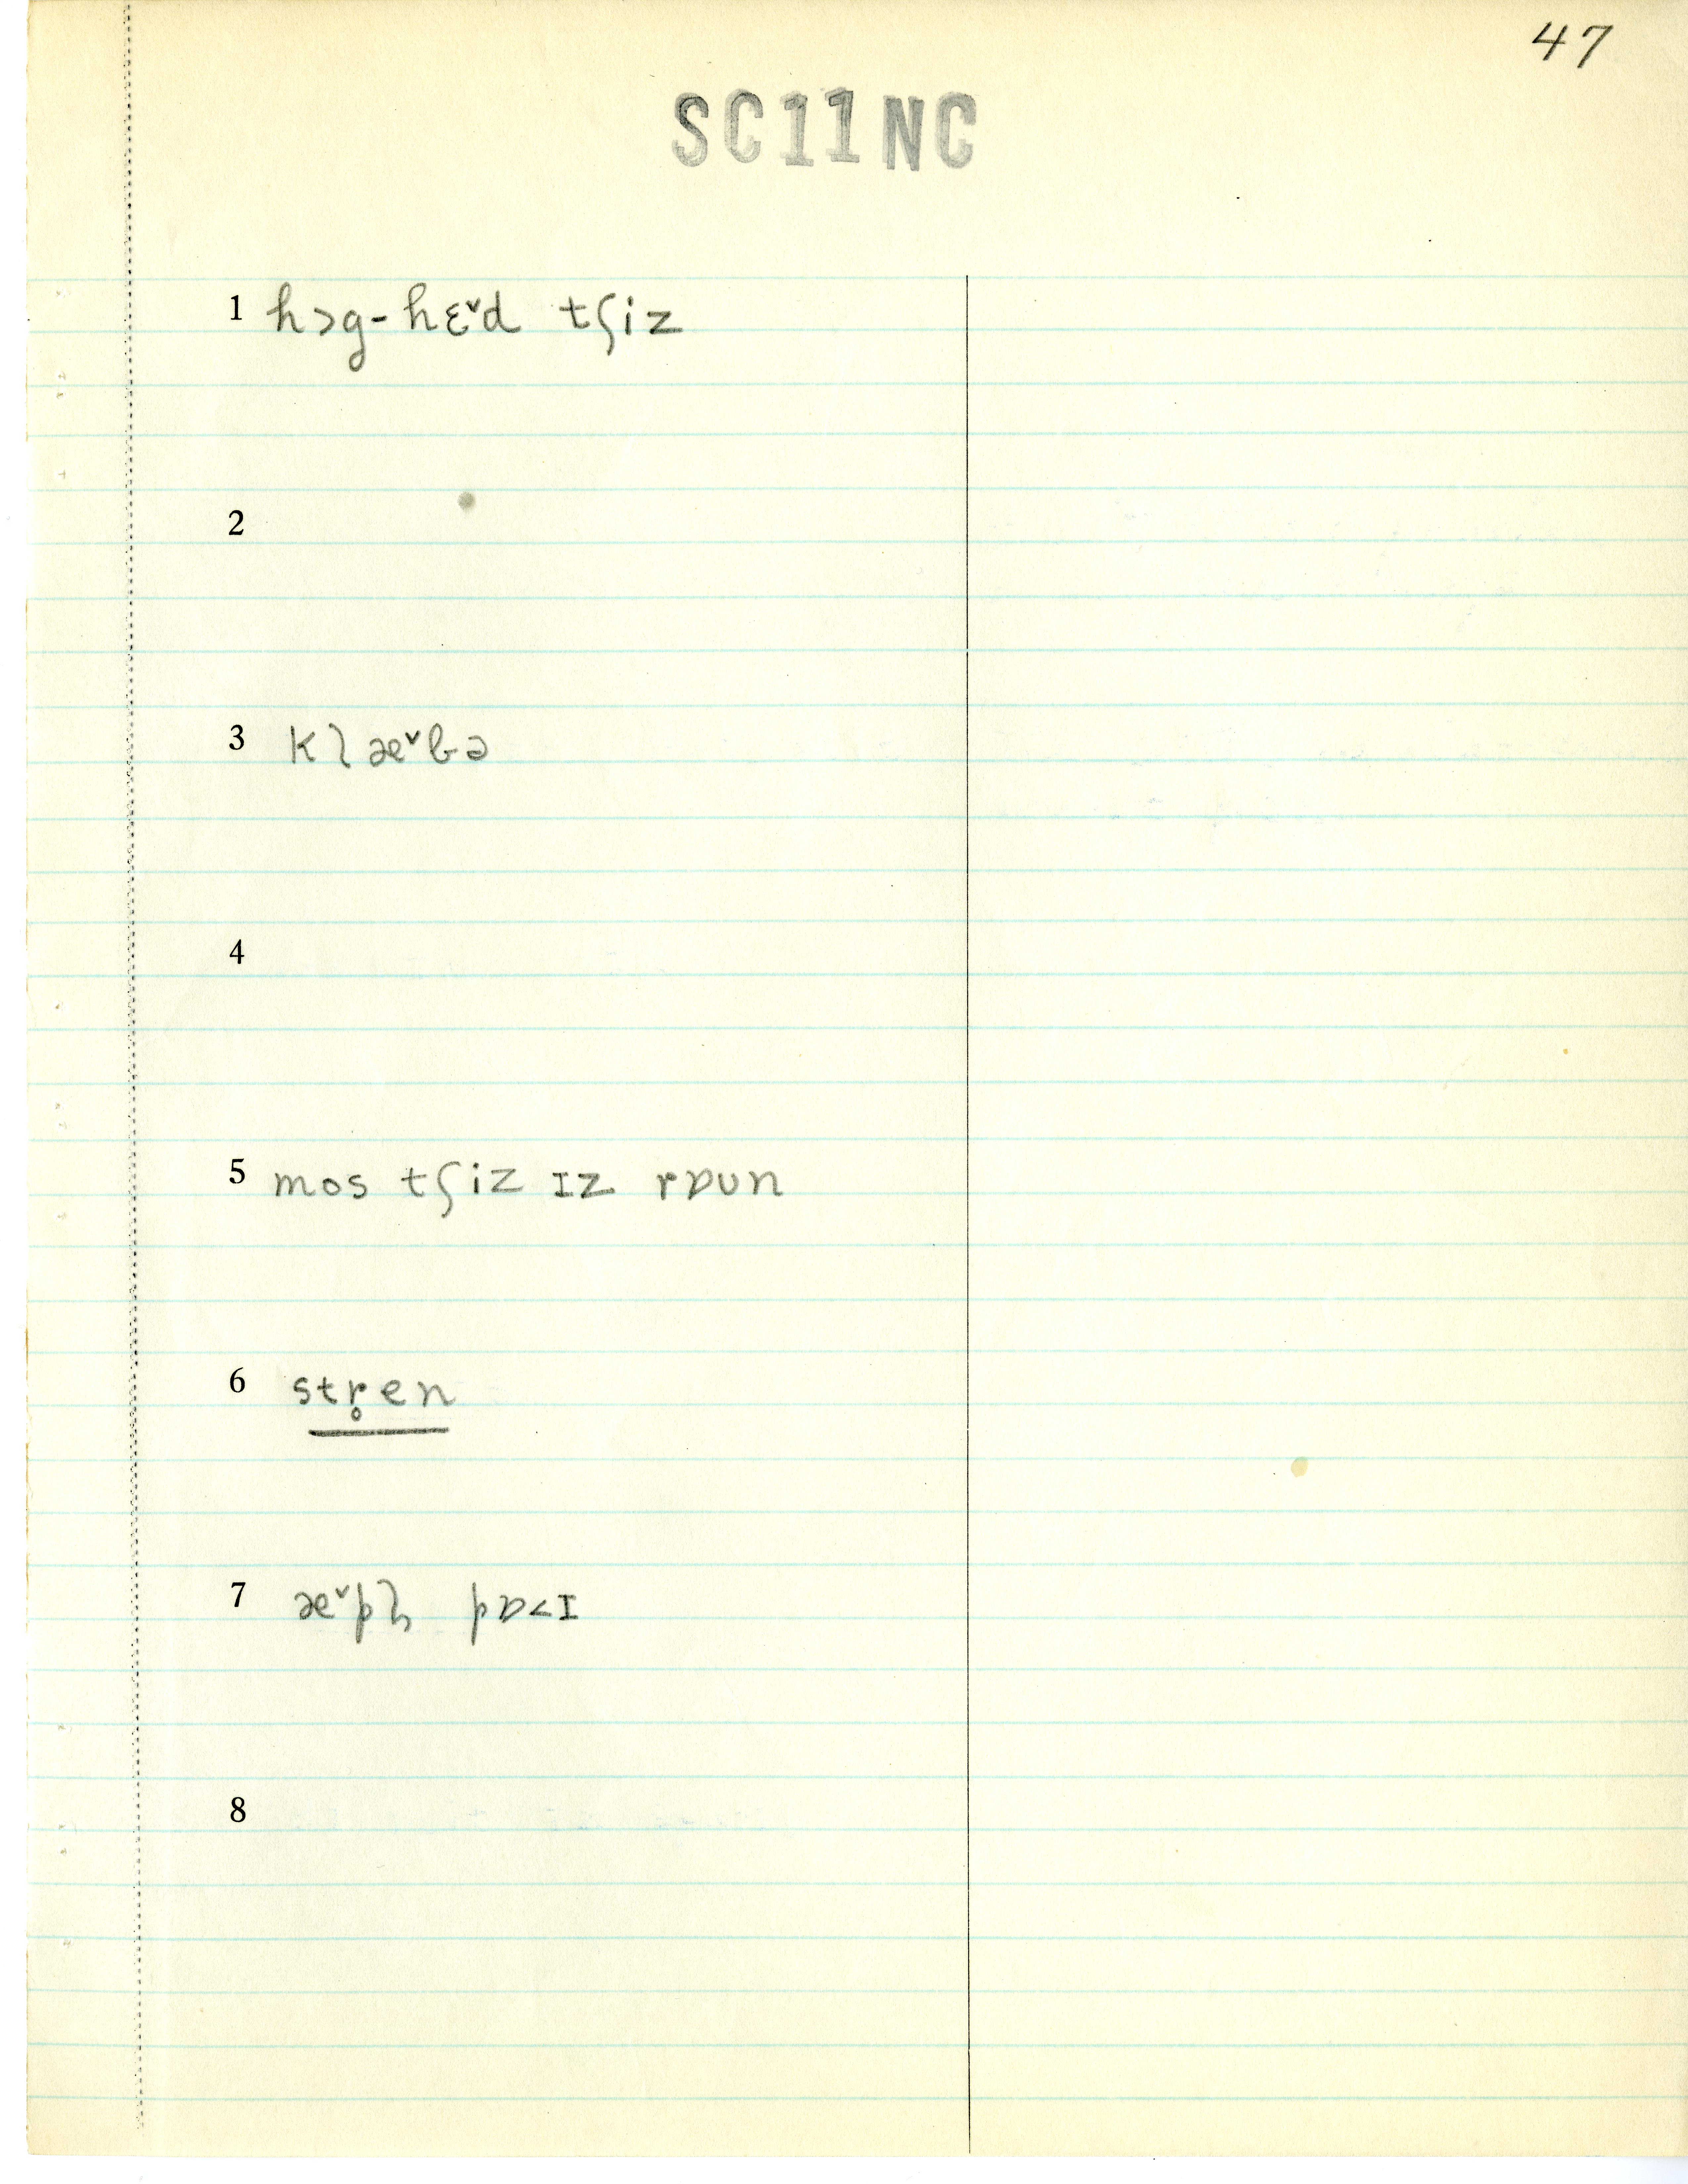 47
SC11NC
1 hɔg-hɛ˅d tʃiz
2
3 klæ˅bə
4
5 mos tʃiz ɪz rɒun
6 str̥en
7 æ˅pl̩ pɒ˂ɪ
8